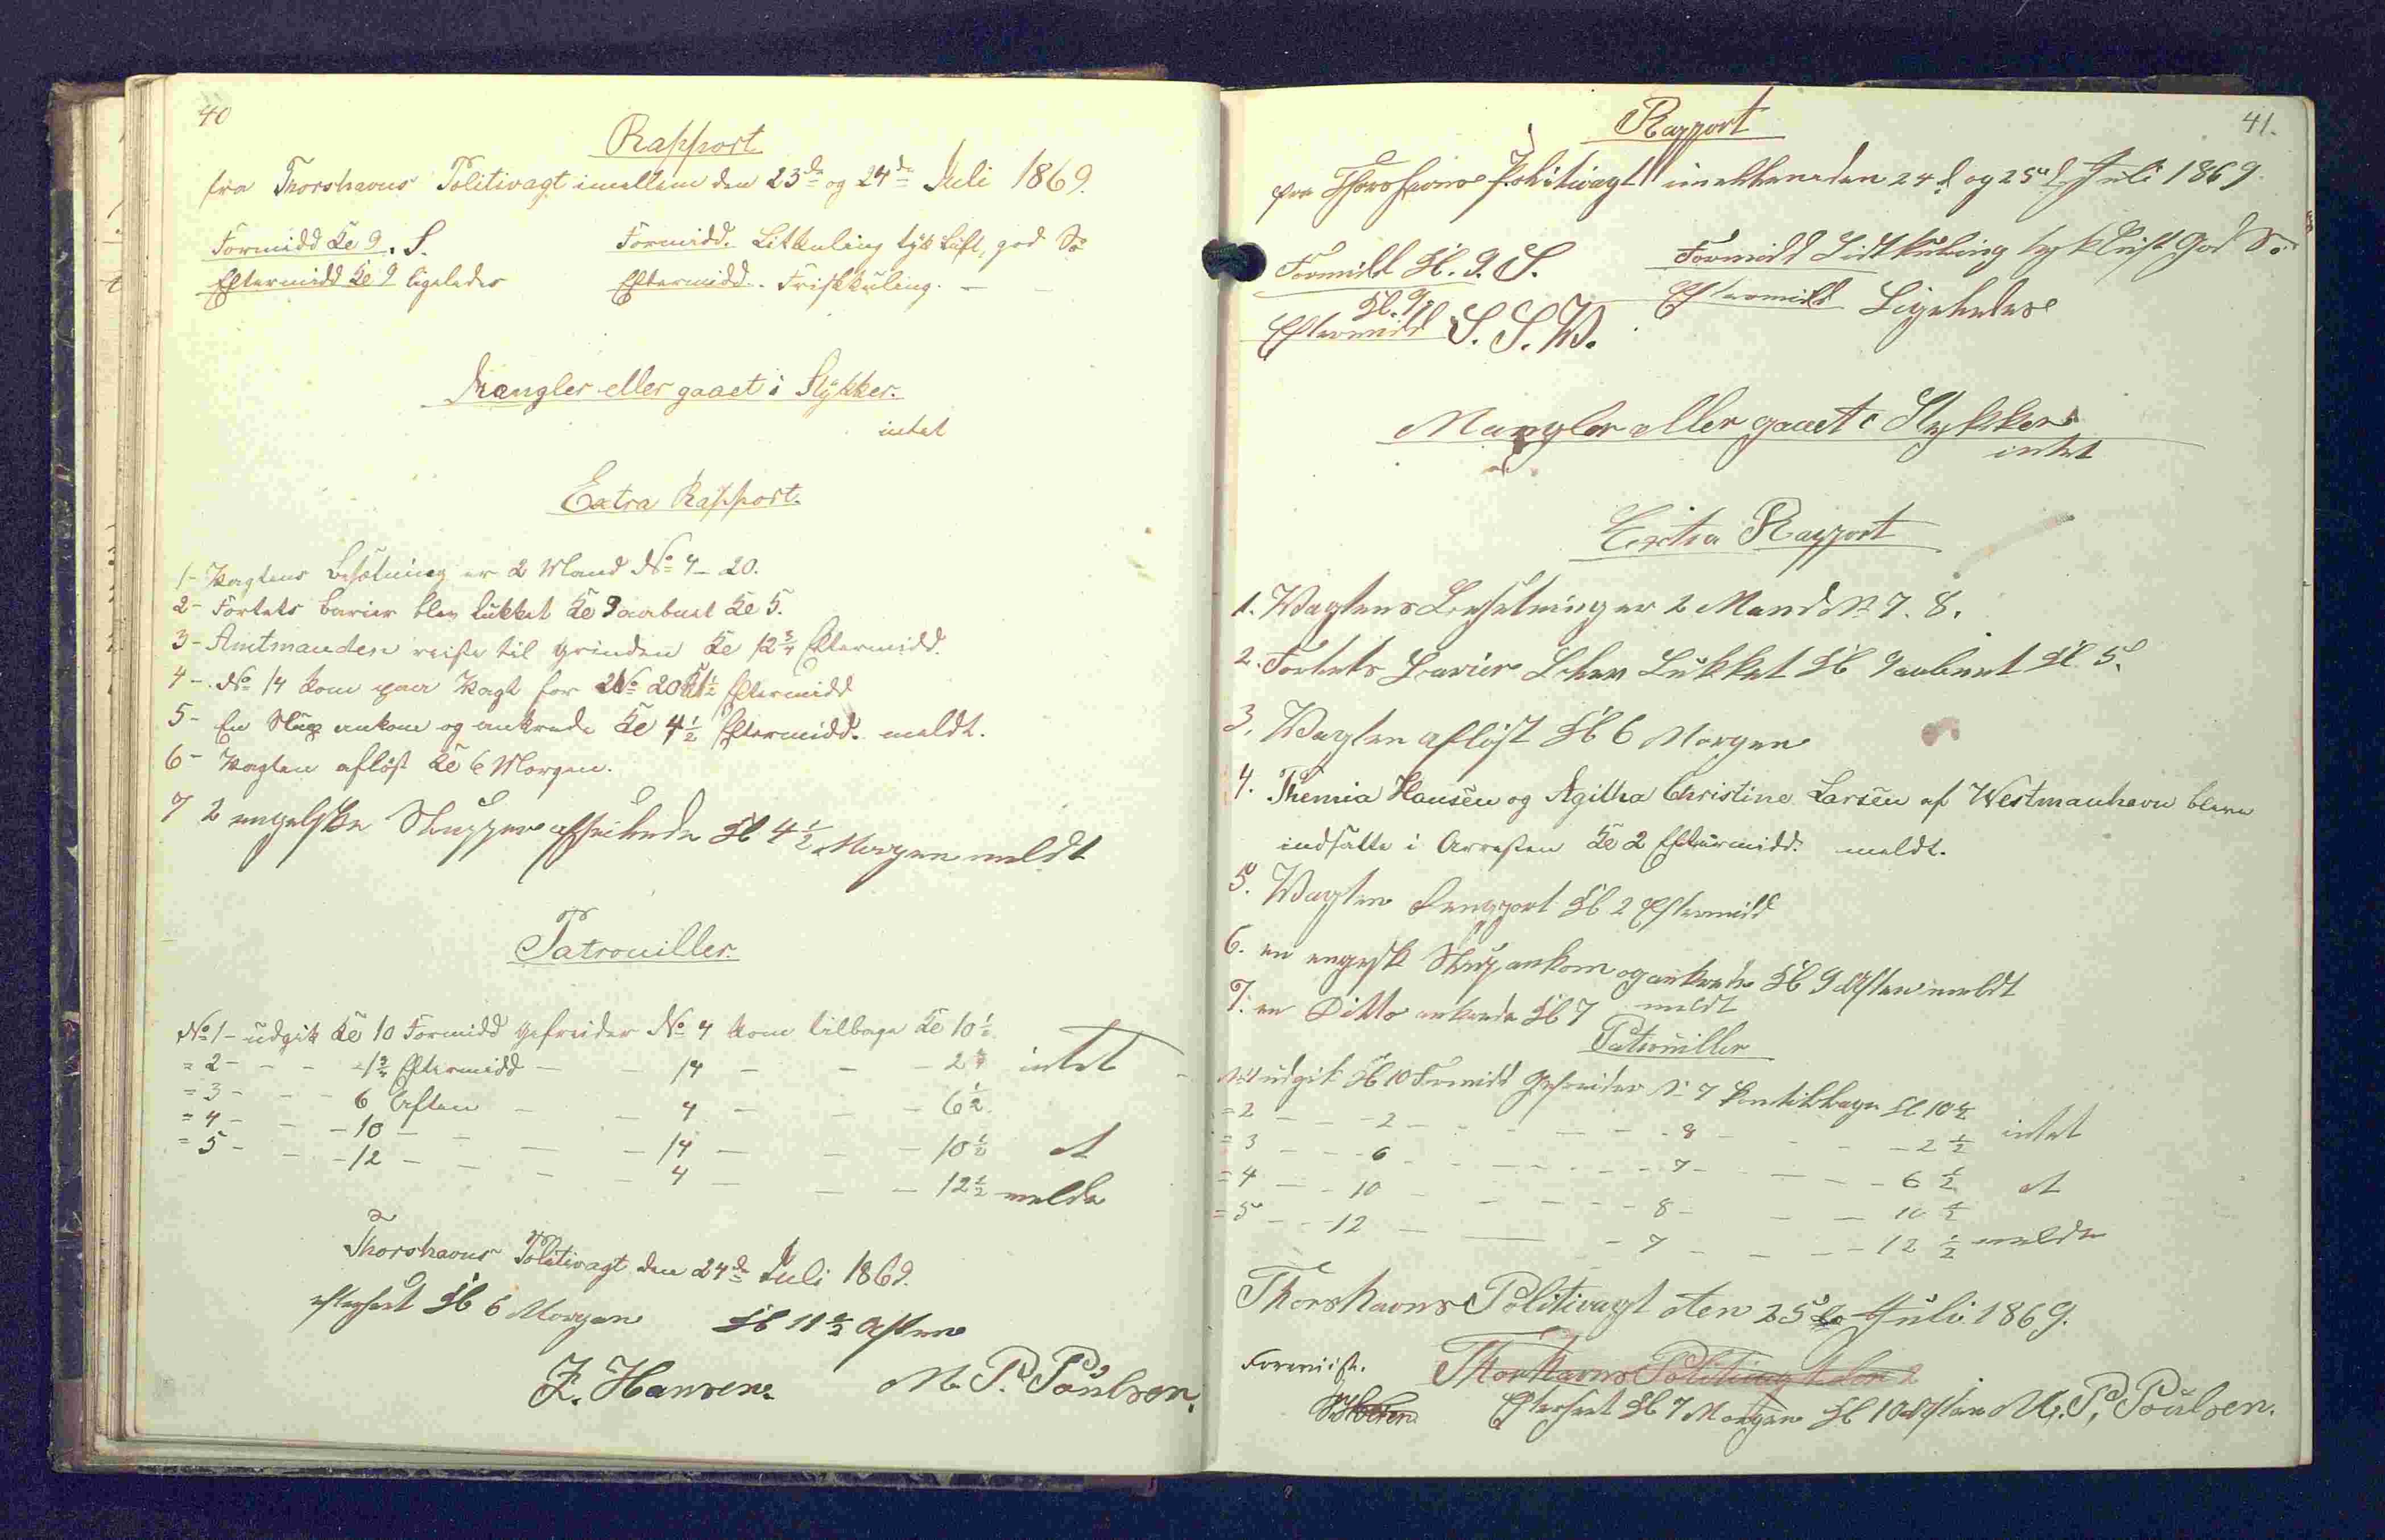 40
Rapport
fra Thorshavns Politivagt imellem den 23de og 24de Juli 1869.
Formidd Kl 9. S. Formidd. Litkuling tyk Luft, god Sö
Eftermidd Kl 9 ligeledes Eftermidd. Friskkuling. — —
Mangler eller gaaet i Stykker.
intet
Extra Rapport.
1- Vagtens Besætning er 2 Mand No 4 - 20.
2- Fortets barier blev lukket Kl 9 aabnet Kl 5.
3- Amtmanden reiste til Grinden Kl 12 3/4 Eftermidd.
4- No 14 kom paa Vagt for No 20 Kl 1/2 Eftermidd
5- En Slup ankom og ankrede Kl 4 1/2 Eftermidd. meldt.
6- Vagten aflöst Kl 6 Morgen.
7 2 engelske Slupper afseilede Kl 4 1/2 Morgen meldt
Patrouiller.
No 1- udgik Kl 10 Formidd Gefreider No 4 kom tilbage Kl 10 1/2
= 2 - - - 1 3/4 Eftermidd - - 14 - - - 2 intet
= 3 - - - 6 Aften - - 4 - - - 6 1/2
= 4 - - - 10 - - - 14 - - - 10 1/2 at
= 5 - - - 12 - - - 4 - - - 12 1/2 melde
Thorshavns Politivagt den 24de Juli 1869.
efterseet Kl 6 Morgen Kl 11 1/2 Aften
Z. Hansen. M. P. Poulsen.
41.
Rapport
fra Thorshavns Politivagt imellem den 24d og 25d Juli 1869.
Formidd Kl. 9. S. Formidd Lidtkuling tyk Luft God Sö
Kl. 9.
Eftermidd S. S. W. Eftermidd Ligeledes
Mangler eller gaaet i Stykker
intet
Extra Rapport
1. Wagtens Besetning er 2 Mand No 7. 8.
2. Fortets Barier blev Lukket Kl 9 aabnet Kl 5.
3. Wagten aflöst Kl 6 Morgen
4. Themia Hansen og Agitha Christine Larsen af Westmanhavn bleve
indsatte i Arresten Kl 2 Eftermidd. meldt.
5. Wagten Kl 2 Eftermidd
6. en engelsk Slup ankom og ankrede Kl 9 Aften meldt
7. en Ditto ankrede Kl 7 meldt
Patrouiller
No 1 udgik Kl 10 Formidd Gefreider No 7 kom tilbage Kl. 10 1/2
= 2 - - - 2 - - - 8 - - - 2 1/2 intet
= 3 - - - 6 - - - 7 - - - 6 1/2
= 4 - - - 10 - - - 8 - - - 10 1/2 at
= 5 - - - 12 - - - 7 - - - 12 1/2 melde
Thorshavns Politivagt den 25de Juli 1869.
Thorshavns Politivagt den 2
Efterseet Kl 7 Morgen Kl 10 Aften M. P. Poulsen.